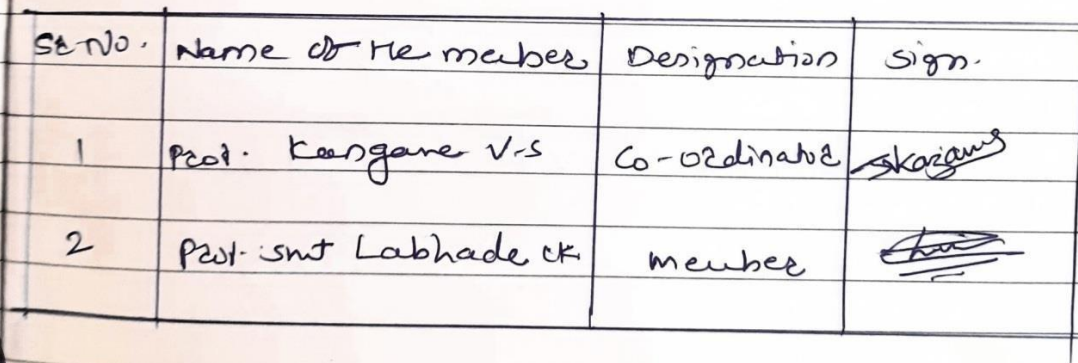 Sr No. Name of the member Designation Sign.
1 Prof. Kangane V.S Co-ordinator
2 Prof. Smt Labhade CK member